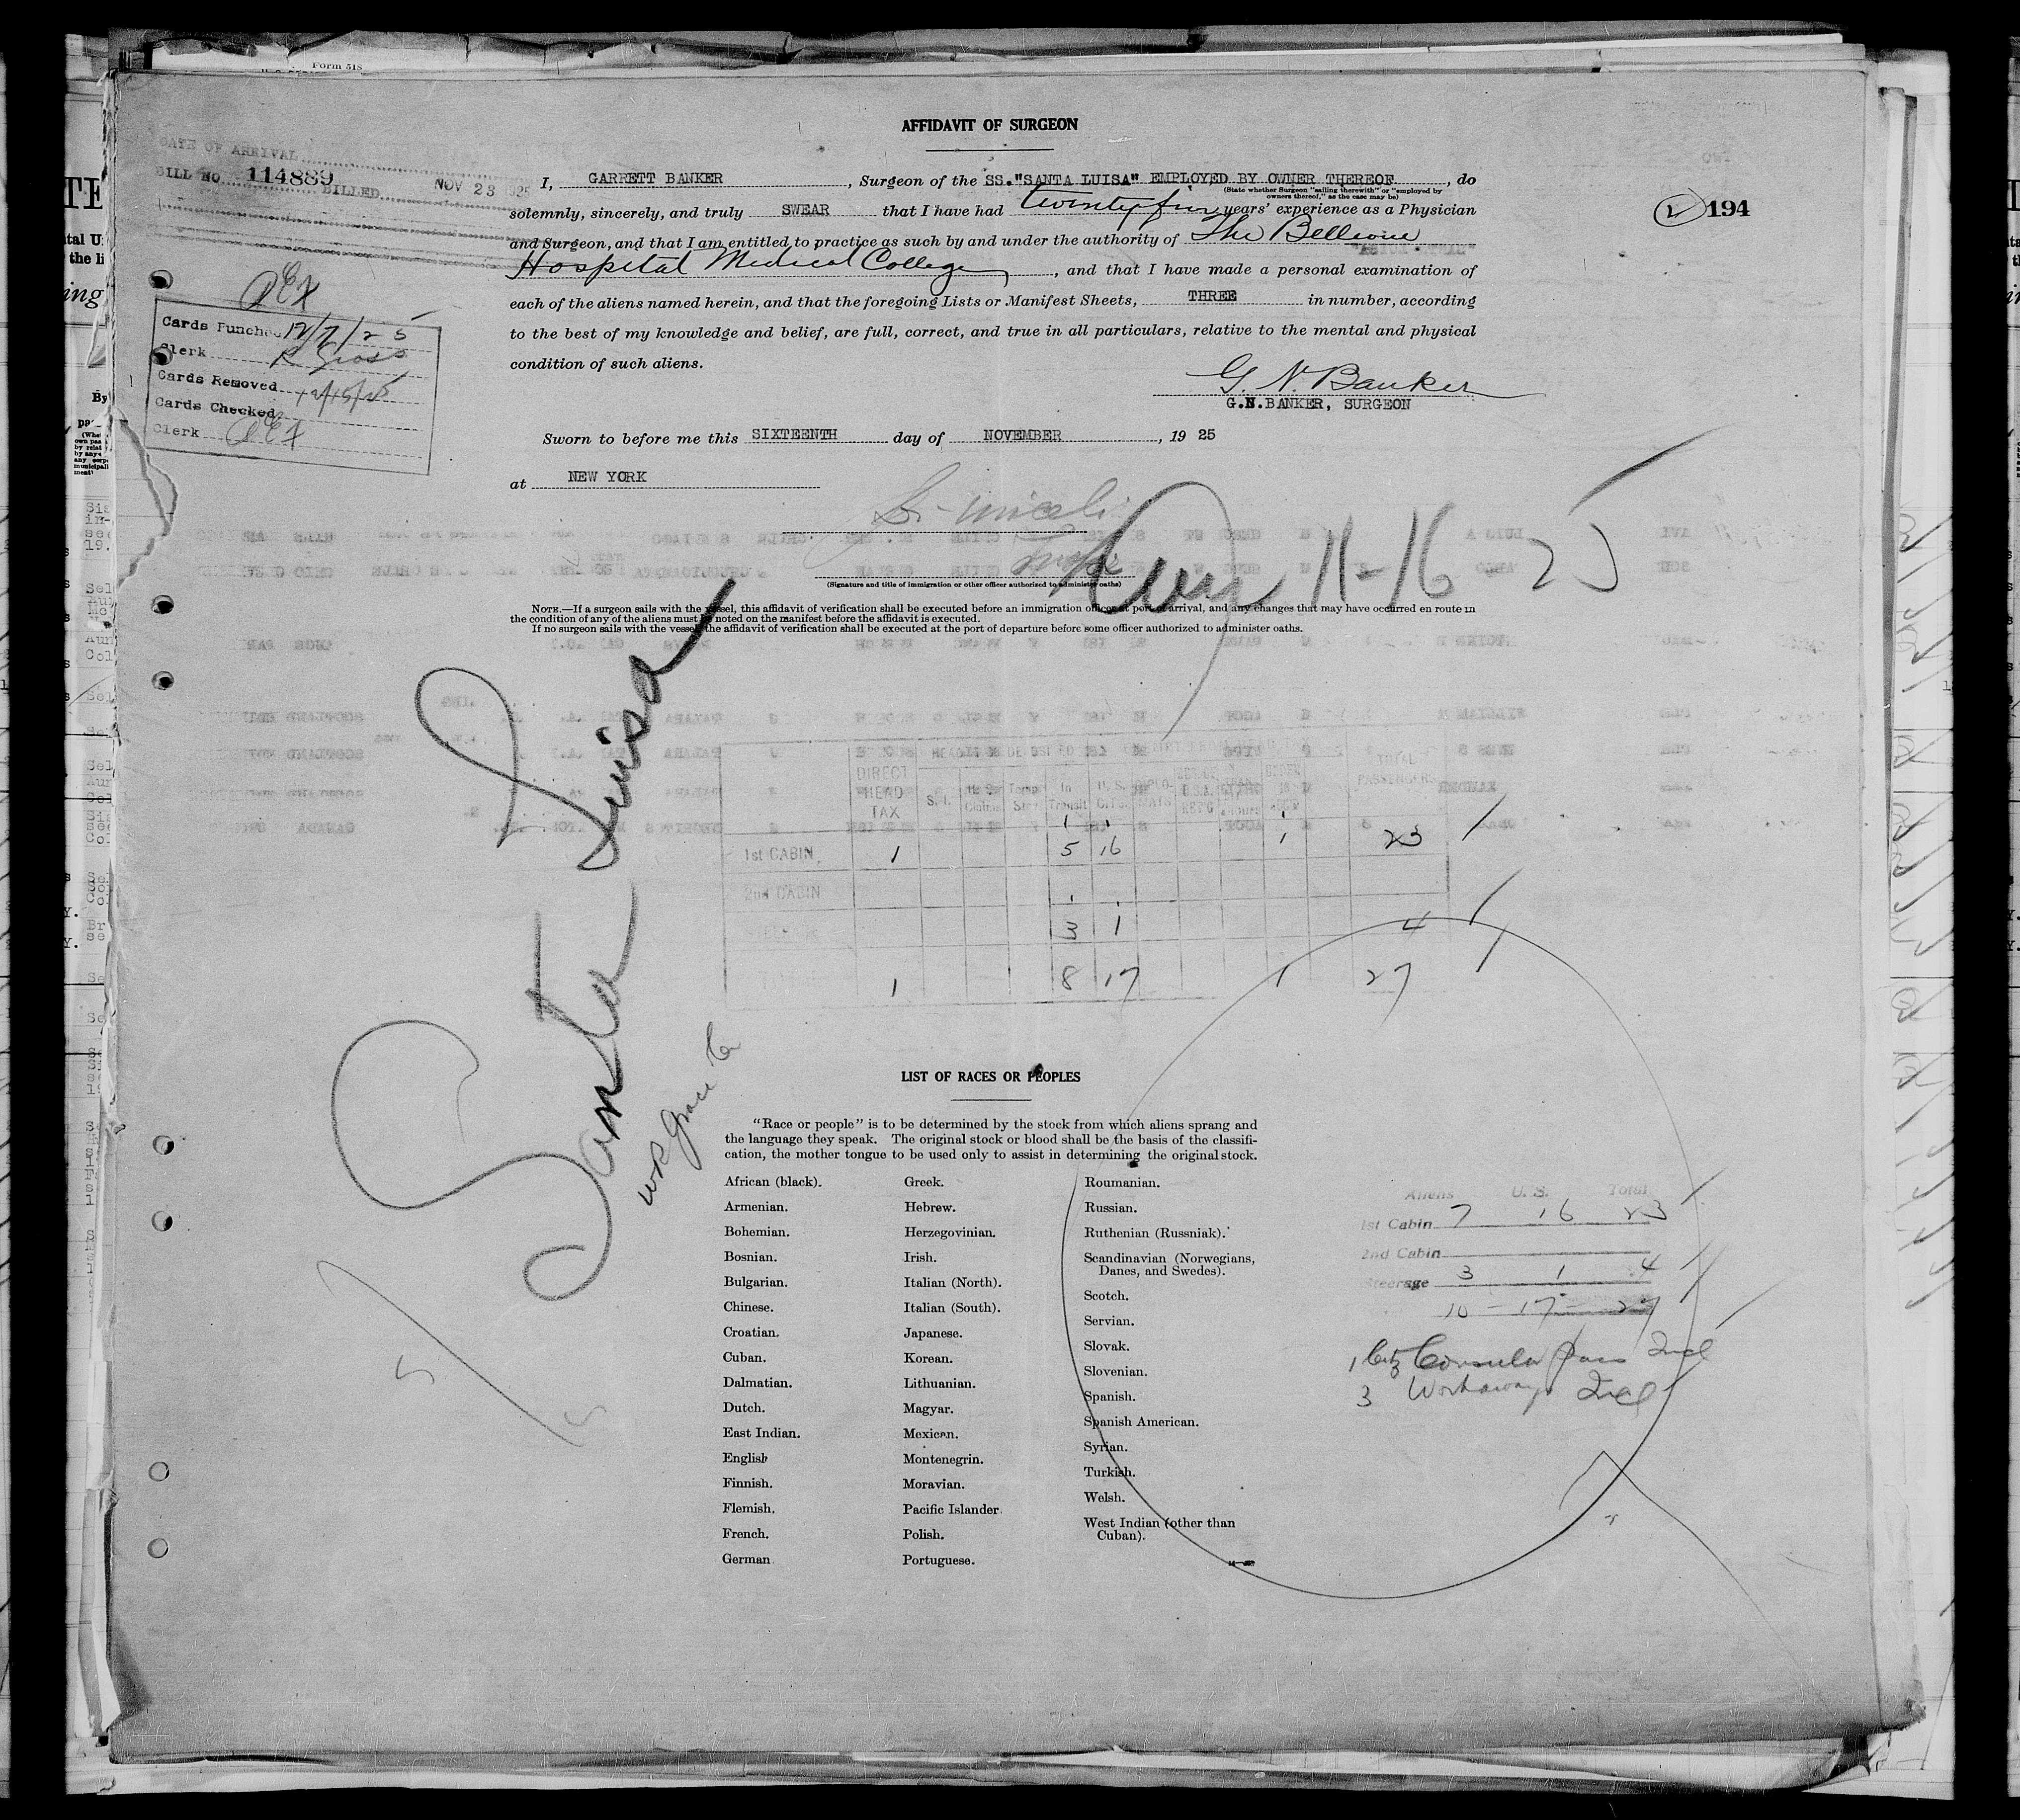 Form 518
AFFIDAVIT OF SURGEON
DATE OF ARRIVAL
BILL NO. 114889 BILLED NOV 23 1925
I, GARRETT BANKER, Surgeon of the SS."SANTA LUISA" EMPLOYED BY OWNER THEREOF, do
(State whether Surgeon "sailing therewith" or "employed by
owners thereof," as the case may be)
solemnly, sincerely, and truly SWEAR that I have had twenty-five years' experience as a Physician
194
and Surgeon, and that I am entitled to practice as such by and under the authority of The Bellevue
Hospital Medical College, and that I have made a personal examination of
each of the aliens named herein, and that the foregoing Lists or Manifest Sheets, THREE in number, according
to the best of my knowledge and belief, are full, correct, and true in all particulars, relative to the mental and physical
condition of such aliens.
G. N. Banker
G.N.BANKER, SURGEON
Cards Punched 12/7/25
Clerk R Gross
Cards Removed 12/15/25
Cards Checked
Clerk
Sworn to before me this SIXTEENTH day of NOVEMBER, 19 25
at NEW YORK
11-16 25
(Signature and title of immigration or other officer authorized to administer oaths)
NOTE.—If a surgeon sails with the vessel, this affidavit of verification shall be executed before an immigration officer at port of arrival, and any changes that may have occurred en route in
the condition of any of the aliens must be noted on the manifest before the affidavit is executed.
If no surgeon sails with the vessel, the affidavit of verification shall be executed at the port of departure before some officer authorized to administer oaths.
Santa Luisa
WR Grace Co
DIRECT HEAD TAX
S.I.
In Transit
U.S. CITZ.
TOTAL PASSENGERS
1st CABIN 1 5 16 1 23
2nd CABIN
3 1 4
1 8 17 1 27
LIST OF RACES OR PEOPLES
"Race or people" is to be determined by the stock from which aliens sprang and
the language they speak. The original stock or blood shall be the basis of the classifi-
cation, the mother tongue to be used only to assist in determining the original stock.
African (black).
Armenian.
Bohemian.
Bosnian.
Bulgarian.
Chinese.
Croatian.
Cuban.
Dalmatian.
Dutch.
East Indian.
English
Finnish.
Flemish.
French.
German
Greek.
Hebrew.
Herzegovinian.
Irish.
Italian (North).
Italian (South).
Japanese.
Korean.
Lithuanian.
Magyar.
Mexican.
Montenegrin.
Moravian.
Pacific Islander
Polish.
Portuguese.
Roumanian.
Russian.
Ruthenian (Russniak).
Scandinavian (Norwegians,
Danes, and Swedes).
Scotch.
Servian.
Slovak.
Slovenian.
Spanish.
Spanish American.
Syrian.
Turkish.
Welsh.
West Indian (other than
Cuban).
Aliens U.S. Total
1st Cabin 7 16 23
2nd Cabin
Steerage 3 1 4
10 - 17 - 27
1 Citz Consular pass Incl
3 Workaways Incl